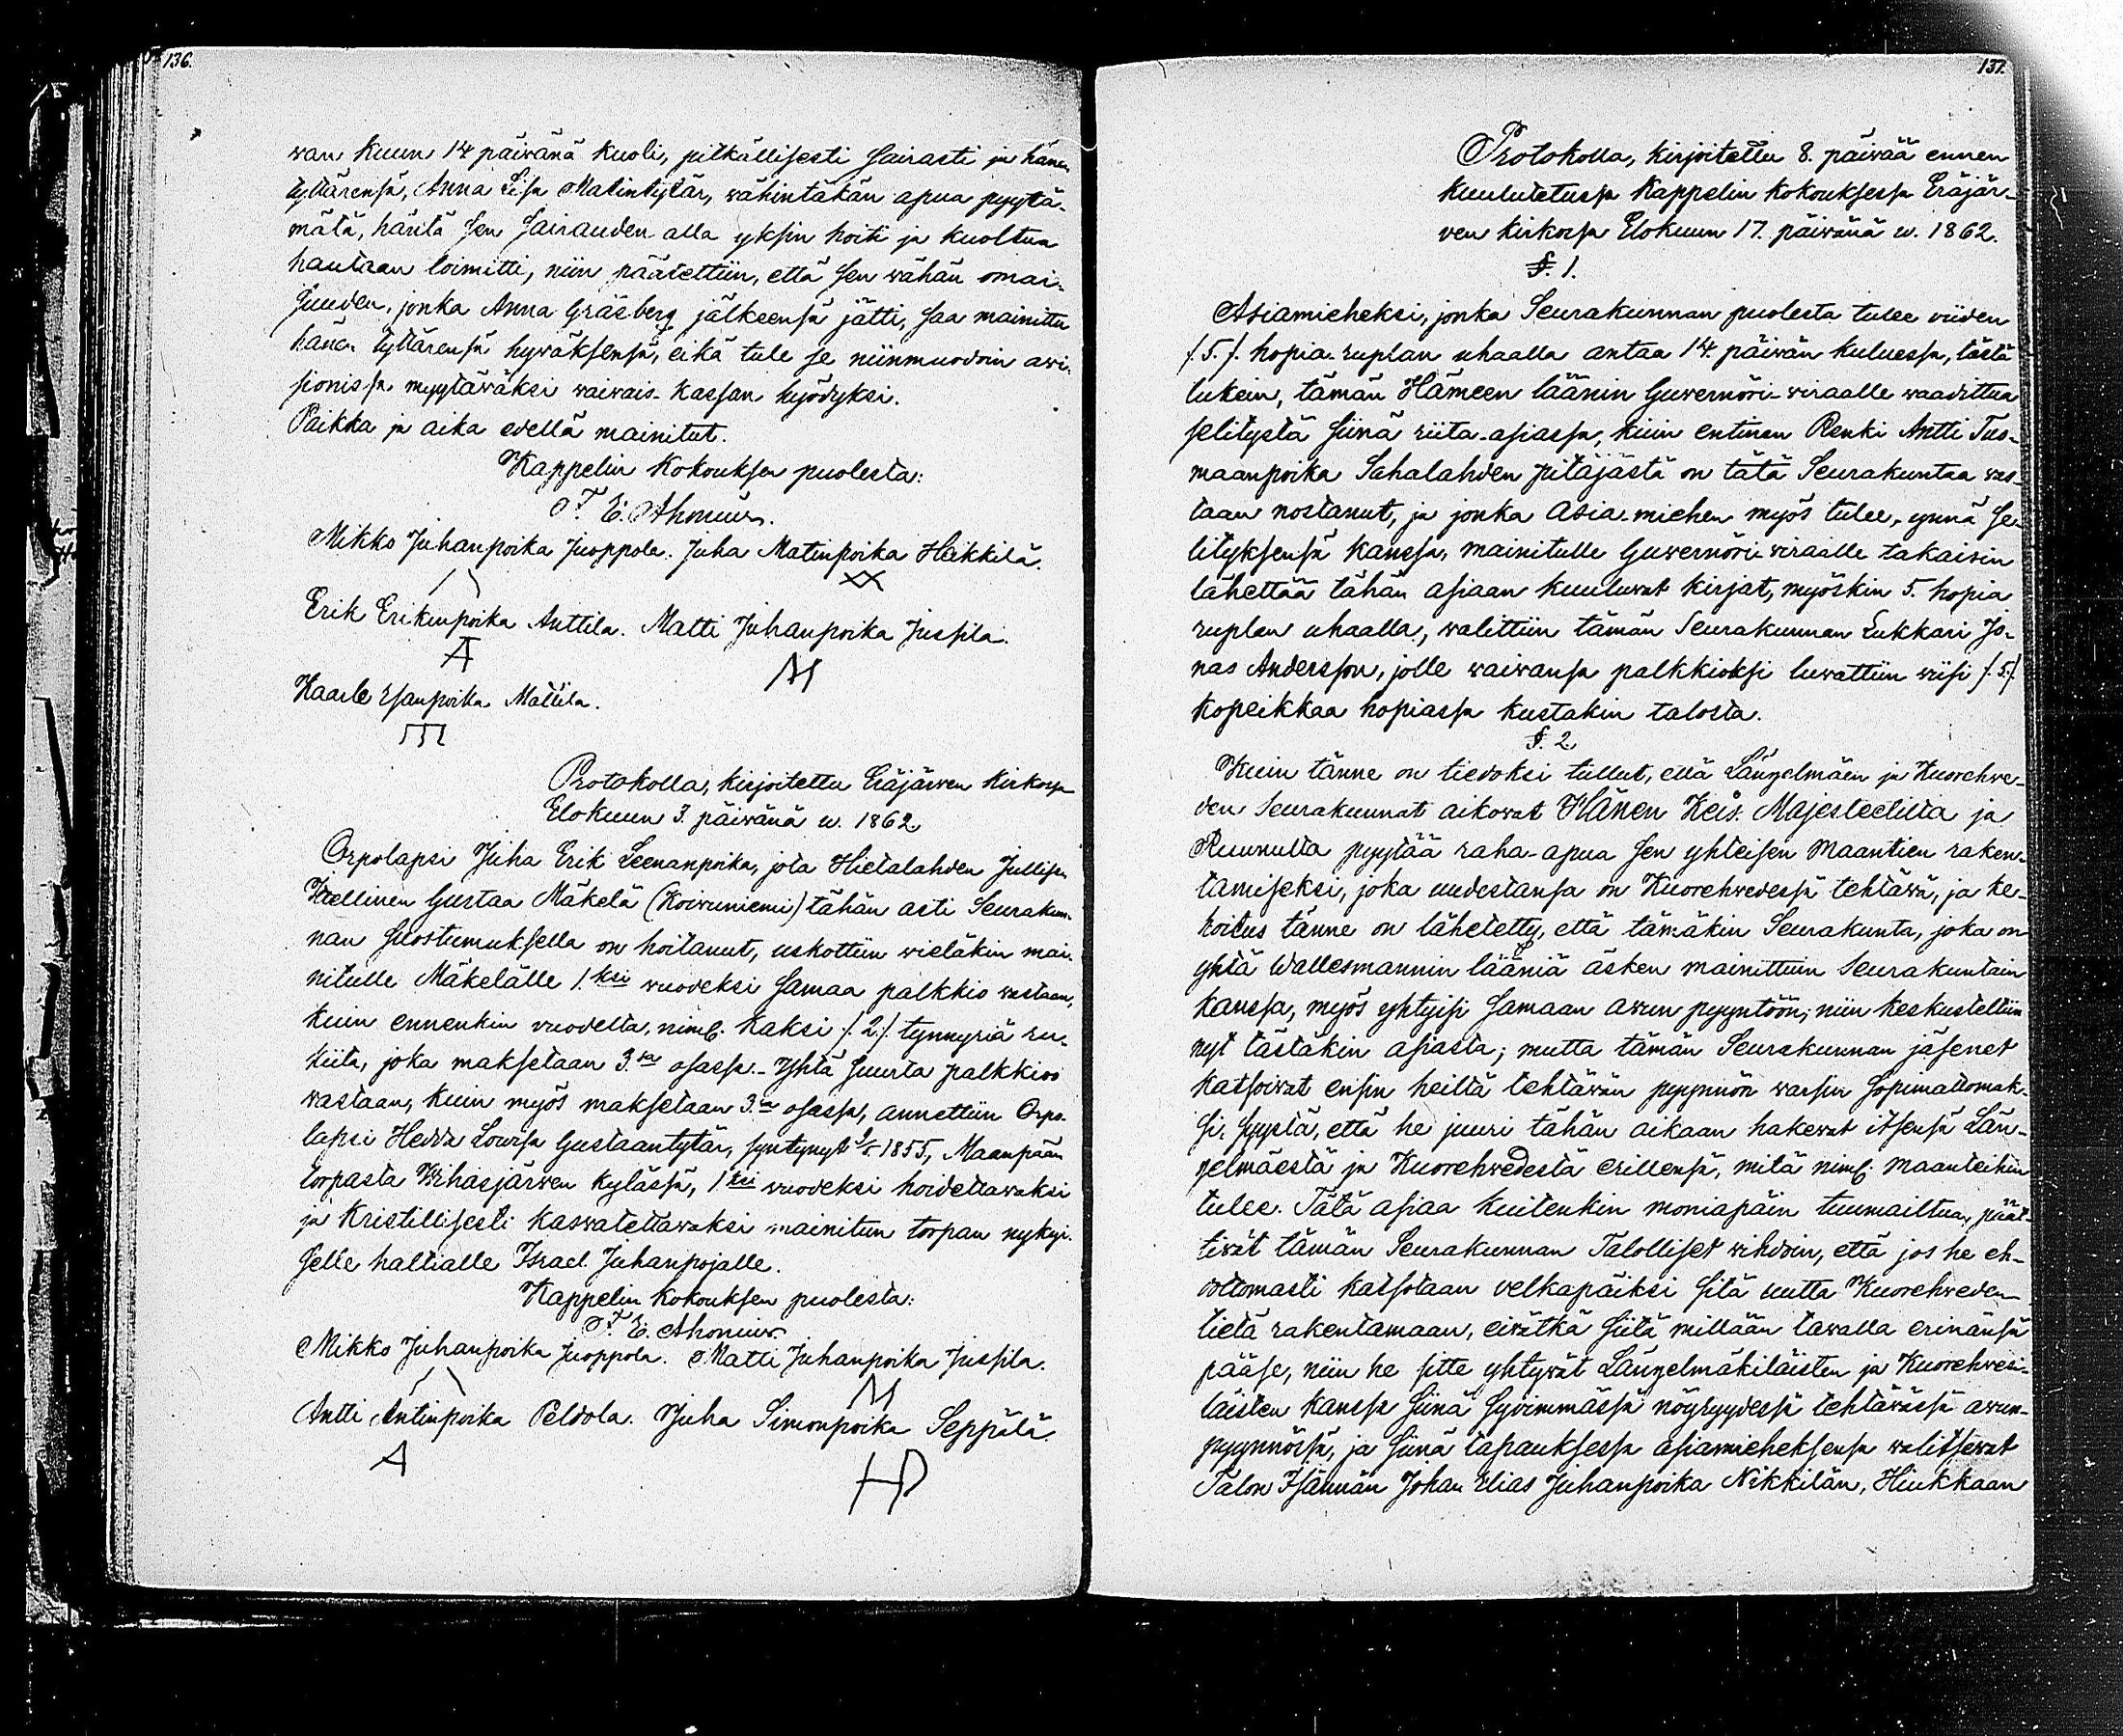 136.
wan kuun 14 päivänä kuoli, pitkällisesti sairasti ja hänen
tyttärensä, Anna Lisa Matintytär, wähintäkän apua pyytä-
mätä, häntä sen sairauden alla yksin hoiti ja kuoltua
hautaan toimitti, niin päätettiin, että sen wähän omai-
suuden, jonka Anna Gräsberg jälkeensä jätti, saa mainittu
hänen tyttärensä hywäksensä, eikä tule se niinmuodoin awi-
sionissa myytäwäksi waiwais-kassan hyödyksi.
Paikka ja aika edellä mainitut.
Kappelin kokouksen puolesta:
F. E. Ahonius.
Mikko Juhanpoika Juoppola. Juha Matinpoika Heikkilä.
Erik Erikinpoika Anttila. Matti Juhanpoika Jussila.
A M
Kaarle Esanpoika Mattila.
Protokolla, kirjoitettu Eräjärwen Kirkossa
Elokuun 3. päivänä w. 1862.
Orpolapsi Juha Erik Leenanpoika, jota Hietalahden
Itsellinen Gustaa Mäkelä (Koivuniemi) tähän asti Seurakun-
nan suostumuksella on hoitanut, uskottiin wieläkin mai-
nitulle Mäkelälle 1.ksi wuodeksi samaa palkkio wastaan,
kuin ennenkin vuodelta, niml. kaksi /.2./. tynnyriä ru-
kiita, joka maksetaan 3.sa osassa. - Yhtä suurta palkkioo
wastaan, kuin myös maksetaan 3.sa osassa, annettiin Orpo-
lapsi Hedda Lowisa Gustaantytär, syntynyt 1855, Maanpään
torpasta Wihasjärwen kylässä, 1.ksi wuodeksi hoidettawaksi
ja Kristillisesti kaswatettawaksi mainitun torpan nykyi-
selle haltialle Israel Juhanpojalle.
Kappelin kokouksen puolesta:
F. E. Ahonius.
Mikko Juhanpoika Juoppola. Matti Juhanpoika Jussila.
M
Antti Antinpoika Peldola. Juha Simonpoika Seppälä.
A
137.
Protokolla, kirjoitettu 8. päivää ennen
kuulutetussa Kappelin kokouksessa Eräjär-
ven kirkossa Elokuun 17. päivänä w. 1862.
§. 1.
Asiamieheksi, jonka Seurakunnan puolesta tulee viiden
/.5./. hopia-ruplan uhaalla antaa 14 päivän kuluessa, tästä
lukein, tämän Hämeen läänin Guwernöri-wiraalle waadittua
selitystä siinä riita-asiassa, kuin entinen Renki Antti Tuo-
maanpoika Sahalahden pitäjästä on tätä Seurakuntaa was-
taan nostanut, ja jonka Asia-miehen myös tulee, ynnä se-
lityksensä kanssa, mainitulle Guwernöri-wiraalle takaisin
lähettää tähän asiaan kuuluwat kirjat, myöskin 5. hopia
ruplan uhaalla, walittiin tämän Seurakunnan Lukkari Jo-
nas Andersson, jolle waiwansa palkkioksi luwattiin wiisi /.5./.
kopeikkaa hopiassa kustakin talosta.
§. 2.
Kuin tänne on tiedoksi tullut, että Längelmäen ja Kuorehwe-
den Seurakunnat aikowat HÄnen Keis. Majesteetilta ja
Ruunulta pyytää raha-apua sen yhteisen maantien raken-
tamiseksi, joka uudestansa on Kuorehwedessä tehtäwä, ja ke-
hoitus tänne on lähetetty, että tämäkin Seurakunta, joka on
yhtä Wallesmannin lääniä äsken mainittuin Seurakuntain
kanssa, myös yhtyisi samaan awun pyyntöön; niin keskusteltiin
nyt tästäkin asiasta; mutta tämän Seurakunnan jäsenet
katsoiwat ensin heiltä tehtäwän pyynnön warsin sopimattomak-
si, syystä, että he juuri tähän aikaan hakewat itsensä Län-
gelmäestä ja Kuorehwedestä erillensä, mitä niml. maanteihin
tulee. Tätä asiaa kuitenkin moniapäin tuumailtua, päät-
tiwät tämän Seurakunnan Talolliset wihdoin, että jos he eh-
dottomasti katsotaan velkapäiksi sitä uutta Kuorehweden
tietä rakentamaan, eiwätkä siitä millään tawalla erinänsä
pääse, niin he sitte yhtywät Längelmäkiläisten ja Kuorehwesi-
läisten kanssa siinä sywimmässä nöyryydessä tehtäwässä awun-
pyynnössä, ja siinä tapauksessa asiamieheksensä walitsewat
Talon Isännän Johan Elias Juhanpoika Nikkilän, Hiukkaan